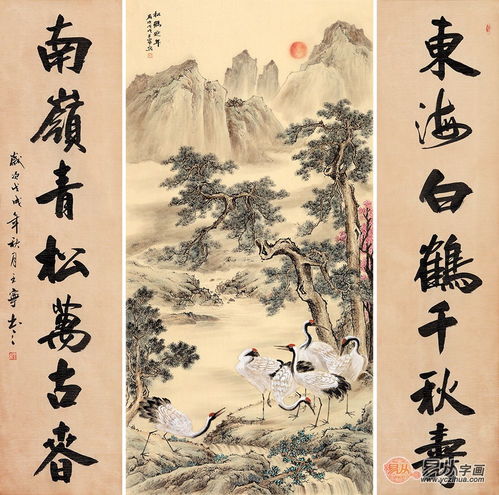 東海白鶴千秋壽
松鶴延年
南嶺青松萬古春
歲次戊戌年秋月王寧書
易从字画
www.yczihua.com